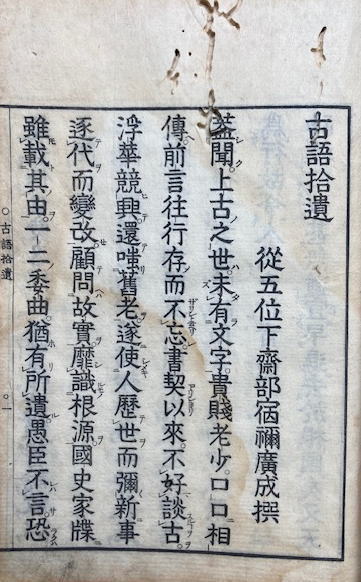 古語拾遺
從五位下齋部宿禰廣成撰
蓋聞上古之世。未有文字。貴賤老少。口口相
傳。前言往行。存而不忘。書契以來。不好談古。
浮華競興。還嗤舊老。遂使人歷世而彌新。事
逐代而變改。顧問故實。靡識根源。國史家牒。
雖載其由。一二委曲。猶有所遺。愚臣不言。恐
○古語拾遺 ○一